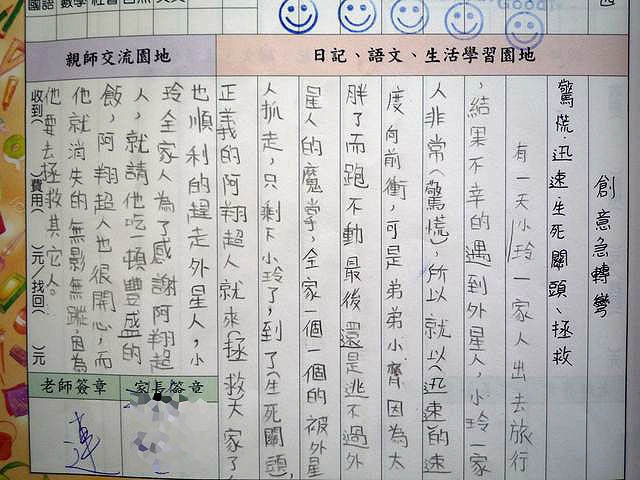 國語 數學 社會 自然 英文
親師交流園地
日記、語文、生活學習園地
創意急轉彎
驚慌、迅速、生死關頭、拯救
有一天小玲一家人出去旅行
,結果不幸的遇到外星人,小玲一家
人非常(驚慌),所以就以(迅速)的速
度向前衝,可是弟弟小齊因為太
胖了而跑不動最後還是逃不過外
星人的魔掌,全家一個一個的被外星
人抓走,只剩下小玲了,到了(生死關頭,
正義的阿翔超人就來(拯救大家了
也順利的趕走外星人,小
玲全家人為了感謝阿翔超
人,就請他吃頓豐盛的
飯,阿翔超人也很開心,而
他就消失的無影無蹤,因為
他要去拯救其它人。
收到( )費用( )元/找回( )元
老師簽章
家長簽章
連